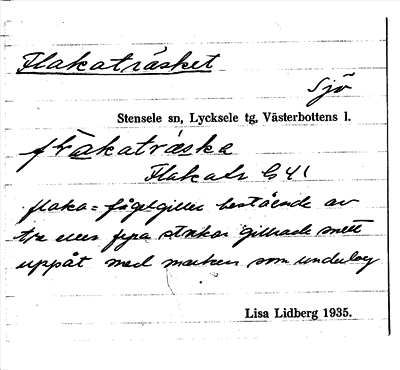 Flakaträsket
Sjö
Stensele sn, Lycksele tg, Västerbottens l.
flakaträska
Flakatr G 41
flaka = fågelgiller bestående av
tre eller fyra stickor gillrade mitt
uppåt med marken som underlag
Lisa Lidberg 1935.